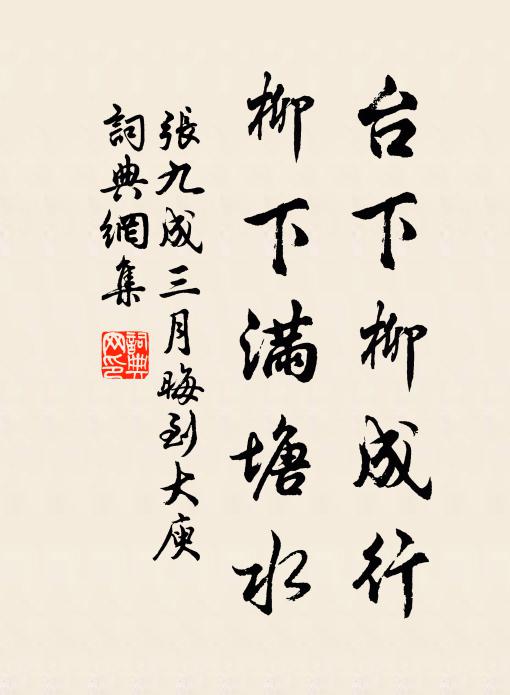 台下柳成行
柳下满塘水
張九成三月晦到大庾
詞典網集
詞典網印